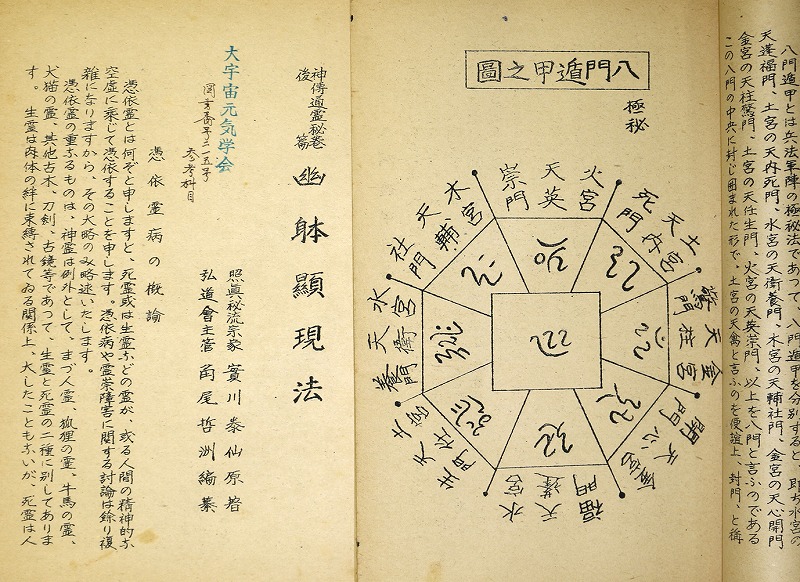 八門遁甲とは兵法軍陣の極秘法であつて、八門遁甲を分別すると、即ち水宮の
天蓬福門、土宮の天内死門、水宮の天衝養門、木宮の天輔社門、金宮の天心開門
金宮の天柱驚門、土宮の天任生門、火宮の天英崇門、以上を八門と言ふのである
この八門の中央に封じ囲まれた形で、土宮の天禽と言ふのを便誼上、封門、と稱
八門遁甲之圖
極秘
火宮
天英
崇門
土宮
天内
死門
金宮
天柱
驚門
天心
開門
水宮
天蓬
福門
天任
生門
水宮
天衝
養門
木宮
天輔
社門
神傳通靈秘巻
後篇
幽躰顯現法
照真秘流宗家 實川泰仙原著
弘道會主管 角尾哲洲編纂
大宇宙元気学会
参考科目
憑依霊病の概論
憑依霊とは何ぞと申しますと、死霊或は生霊などの霊が、或る人間の精神的な
空虚に乗じて憑依することを申します。憑依病や霊祟障害に関する討論は餘り複
雑になりますから、その大略のみ略述いたします。
憑依霊の重なるものは、神霊は例外として、まづ人霊、狐狸の霊、牛馬の霊、
犬猫の霊、其他古木、刀剣、古鏡等であつて、生霊と死霊の二種に別してありま
す。 生霊は肉体の絆に束縛されてゐる関係上、大したこともないが、死霊は人